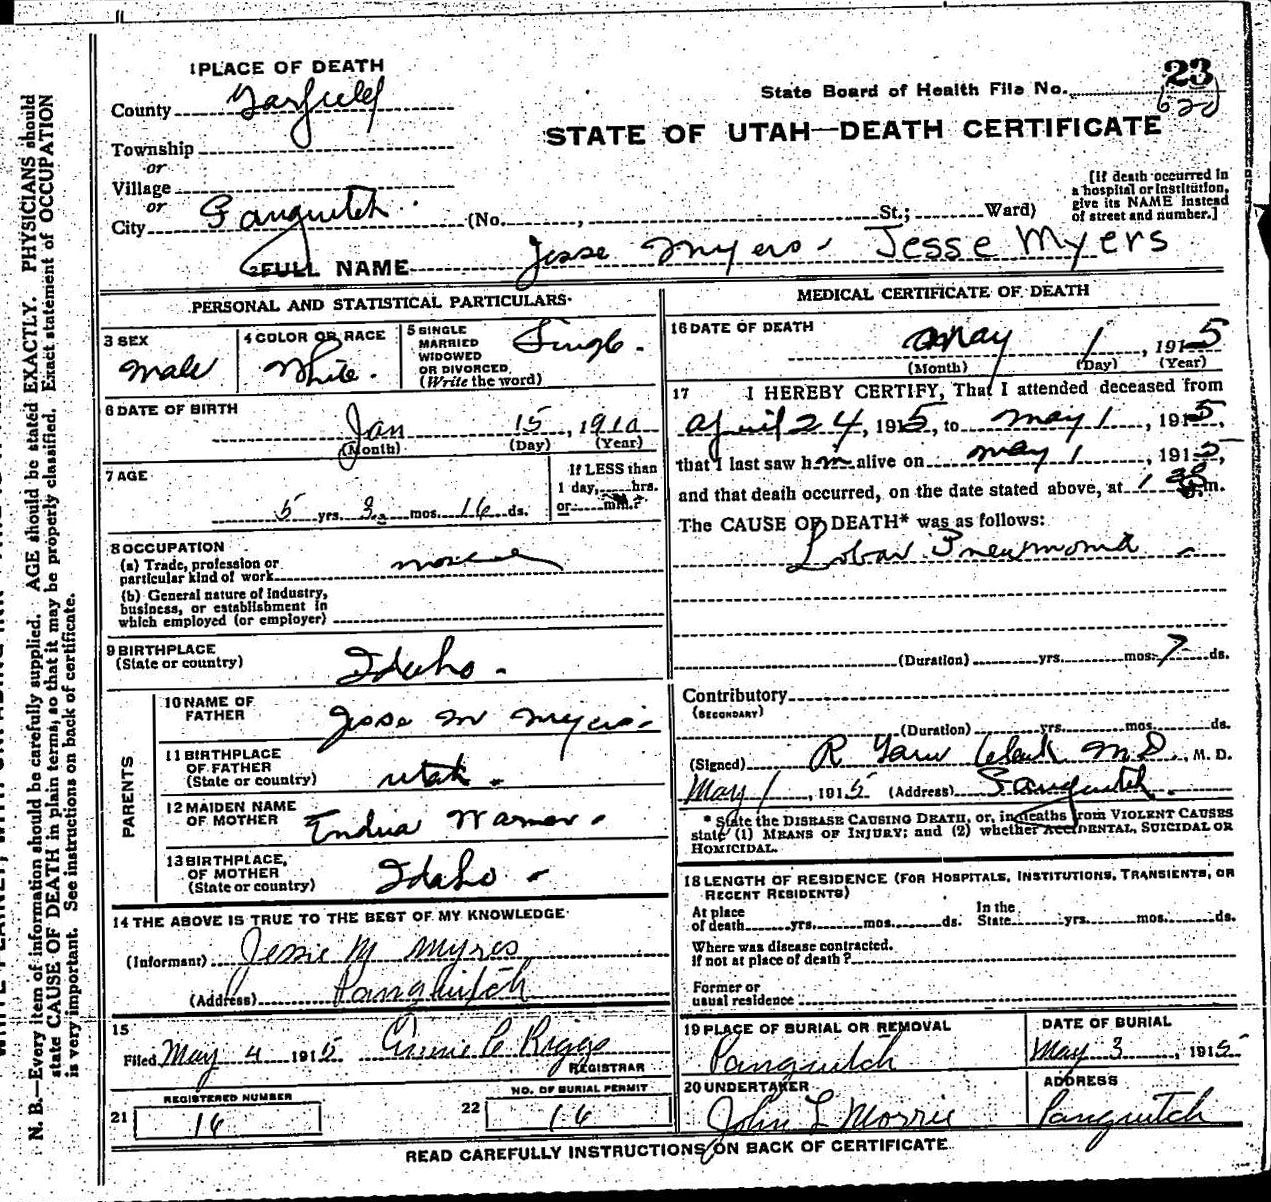 1 PLACE OF DEATH
County Garfield
Township
or
Village
or
City Panguitch (No. , St.; Ward)
State Board of Health File No. 23
620
STATE OF UTAH—DEATH CERTIFICATE
[If death occurred in
a hospital or institution,
give its NAME instead
of street and number.]
2 FULL NAME Jesse Myers. Jesse Myers
PERSONAL AND STATISTICAL PARTICULARS
3 SEX
Male
4 COLOR OR RACE
White.
5 SINGLE
MARRIED
WIDOWED
OR DIVORCED
(Write the word)
Single.
6 DATE OF BIRTH
Jan 15, 1910
(Month) (Day) (Year)
7 AGE
5 yrs. 3 mos. 16 ds.
If LESS than
1 day, hrs.
or min.?
8 OCCUPATION
(a) Trade, profession or
particular kind of work
(b) General nature of Industry,
business, or establishment in
which employed (or employer)
9 BIRTHPLACE
(State or country)
Idaho.
PARENTS
10 NAME OF
FATHER
Jesse M Myers
11 BIRTHPLACE
OF FATHER
(State or country)
Utah.
12 MAIDEN NAME
OF MOTHER
Warner.
13 BIRTHPLACE,
OF MOTHER
(State or country)
Idaho
14 THE ABOVE IS TRUE TO THE BEST OF MY KNOWLEDGE
(Informant) Jessie M Myres
(Address) Panguitch
15
Filed May 4 1915 Annie C Riggs
REGISTRAR
21
REGISTERED NUMBER
16
22
NO. OF BURIAL PERMIT
16
MEDICAL CERTIFICATE OF DEATH
16 DATE OF DEATH
May 1, 1915
(Month) (Day) (Year)
17 I HEREBY CERTIFY, That I attended deceased from
April 24, 1915, to May 1, 1915,
that I last saw him alive on May 1, 1915,
and that death occurred, on the date stated above, at 1 m.
The CAUSE OF DEATH* was as follows:
Lobar Pneumonia
(Duration) yrs. mos. 7 ds.
Contributory
(SECONDARY)
(Duration) yrs. mos. ds.
(Signed) R Garn Clark M.D., M. D.
May 1, 1915 (Address) Panguitch.
* State the DISEASE CAUSING DEATH, or, in deaths from VIOLENT CAUSES
state (1) MEANS OF INJURY; and (2) whether ACCIDENTAL, SUICIDAL OR
HOMICIDAL.
18 LENGTH OF RESIDENCE (FOR HOSPITALS, INSTITUTIONS, TRANSIENTS, OR
RECENT RESIDENTS)
At place
of death yrs. mos. ds.
In the
State yrs. mos. ds.
Where was disease contracted.
if not at place of death?
Former or
usual residence
19 PLACE OF BURIAL OR REMOVAL
Panguitch
DATE OF BURIAL
May 3, 1915
20 UNDERTAKER
John L Morris
ADDRESS
Panguitch
READ CAREFULLY INSTRUCTIONS ON BACK OF CERTIFICATE
N. B.—Every item of information should be carefully supplied. AGE should be stated EXACTLY. PHYSICIANS should
state CAUSE OF DEATH in plain terms, so that it may be properly classified. Exact statement of OCCUPATION
is very important. See instructions on back of certificate.